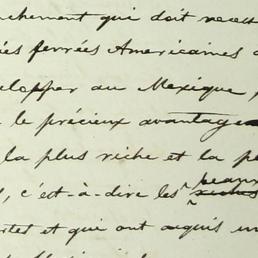 nchement qui doit
ies ferrées Americaines
elopper au Mexique,
le précieux avantage
la plus riche et la
, c'est-à-dire les
rtes et qui ont acquis un